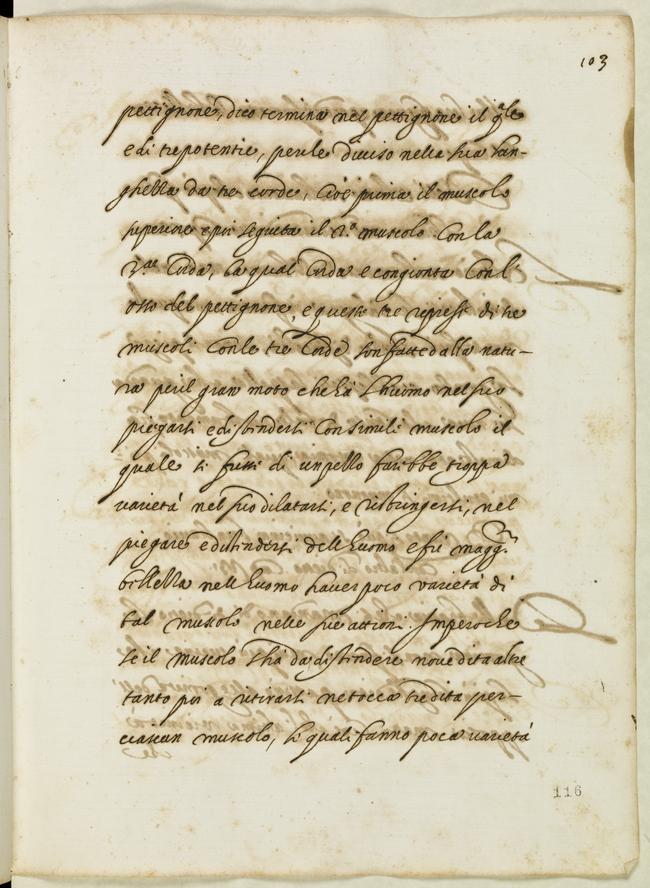 103
pettignone, dico termina nel pettignone il q.le
e di tre potentie, perche diviso nella sua lun-
ghezza da tre corde, cioè prima il muscolo
superiore e poi seguita il 2.o muscolo con la
corda, la qual corda e congionta con l'
osso del pettignone, e questi tre di tre
muscoli con le tre corde son fatte dalla natu-
ra per il gran moto che ha l'huomo nel suo
piegarsi e distendersi con simili muscolo il
quale si fussi di un pezzo farebbe troppa
varietà nel suo dilatarsi, e ristringersi, nel
piegare e distendersi dell'huomo e fie magg.r
bellezza nell'huomo haver poco varietà di
tal muscolo nelle sue attioni. Imperoche
se il muscolo s'ha da distendere nove dita altre
tanto poi a ritirarsi ne tocca tre dita per-
ciascun muscolo, li quali fanno poca varietà
116